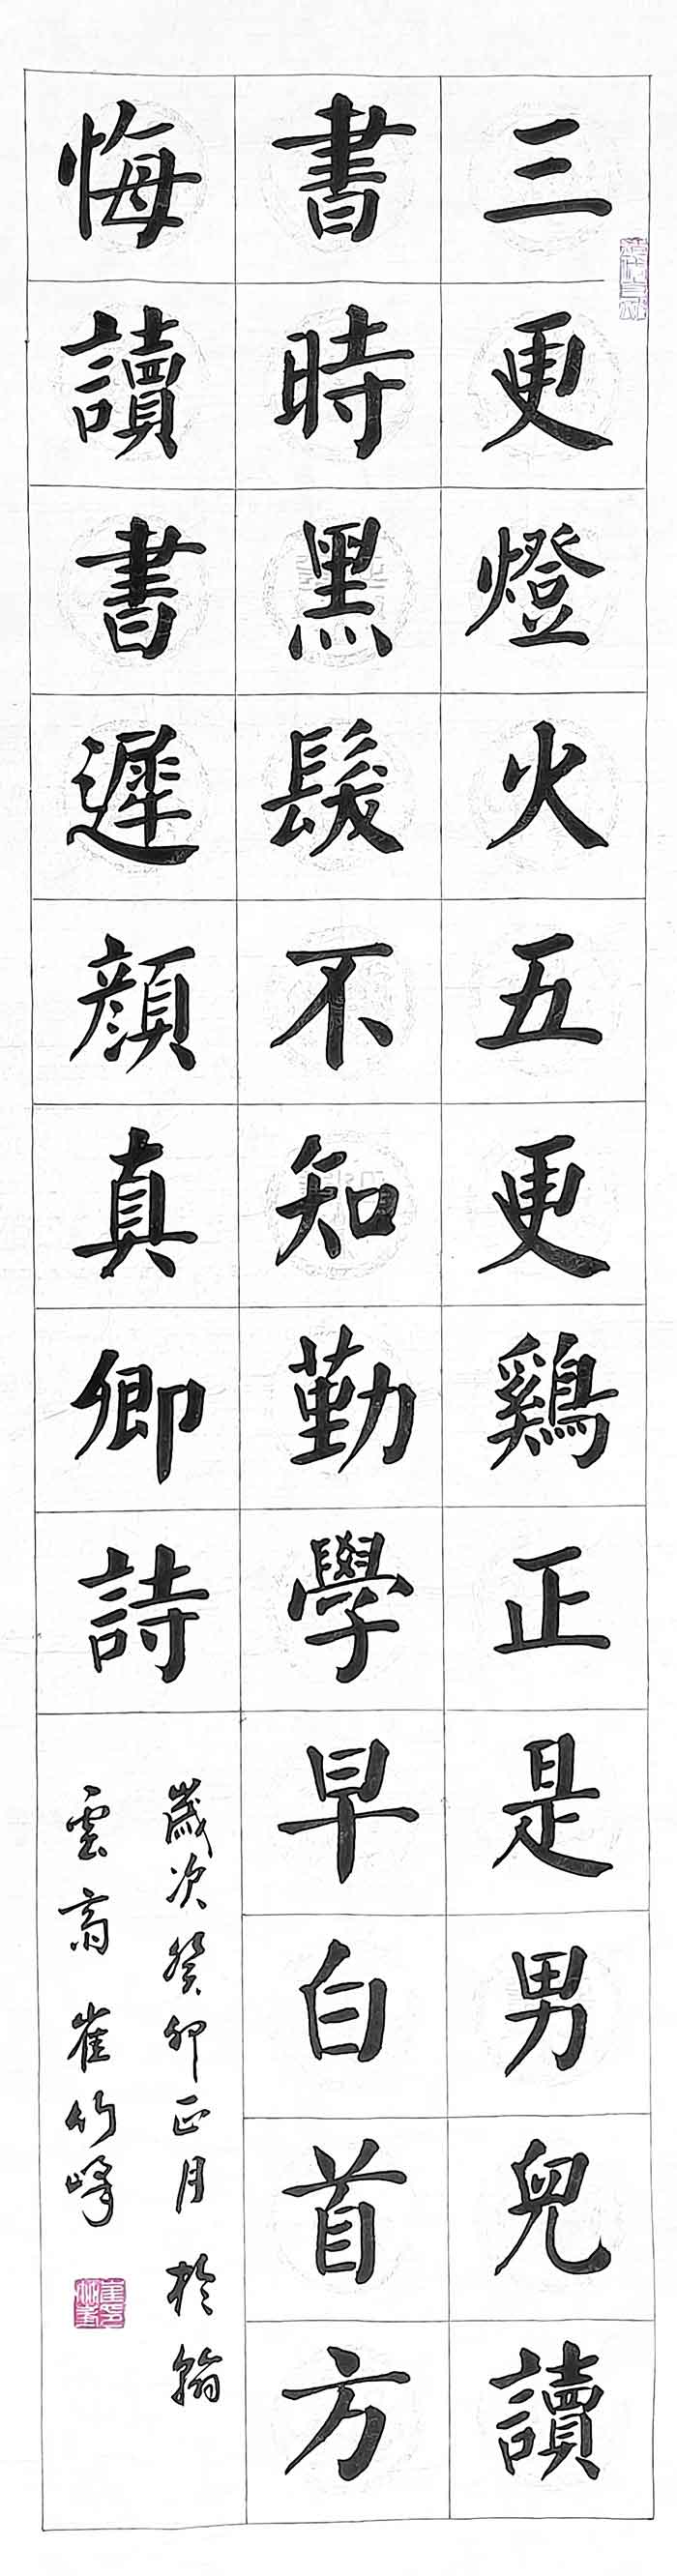 三更燈火五更鷄正是男兒讀
書時黑髮不知勤學早白首方
悔讀書遲顔真卿詩
歲次癸卯正月於翰
雲齋崔竹峰